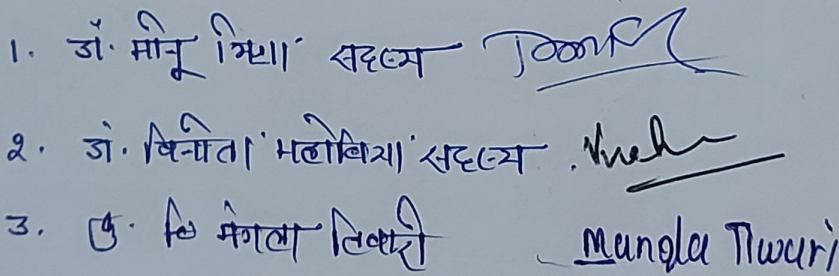 1. डॉ. मीनू मिश्रा सदस्य
2. डॉ. विनीता महोबिया सदस्य
3. मंगला तिवारी Mangla Tiwari